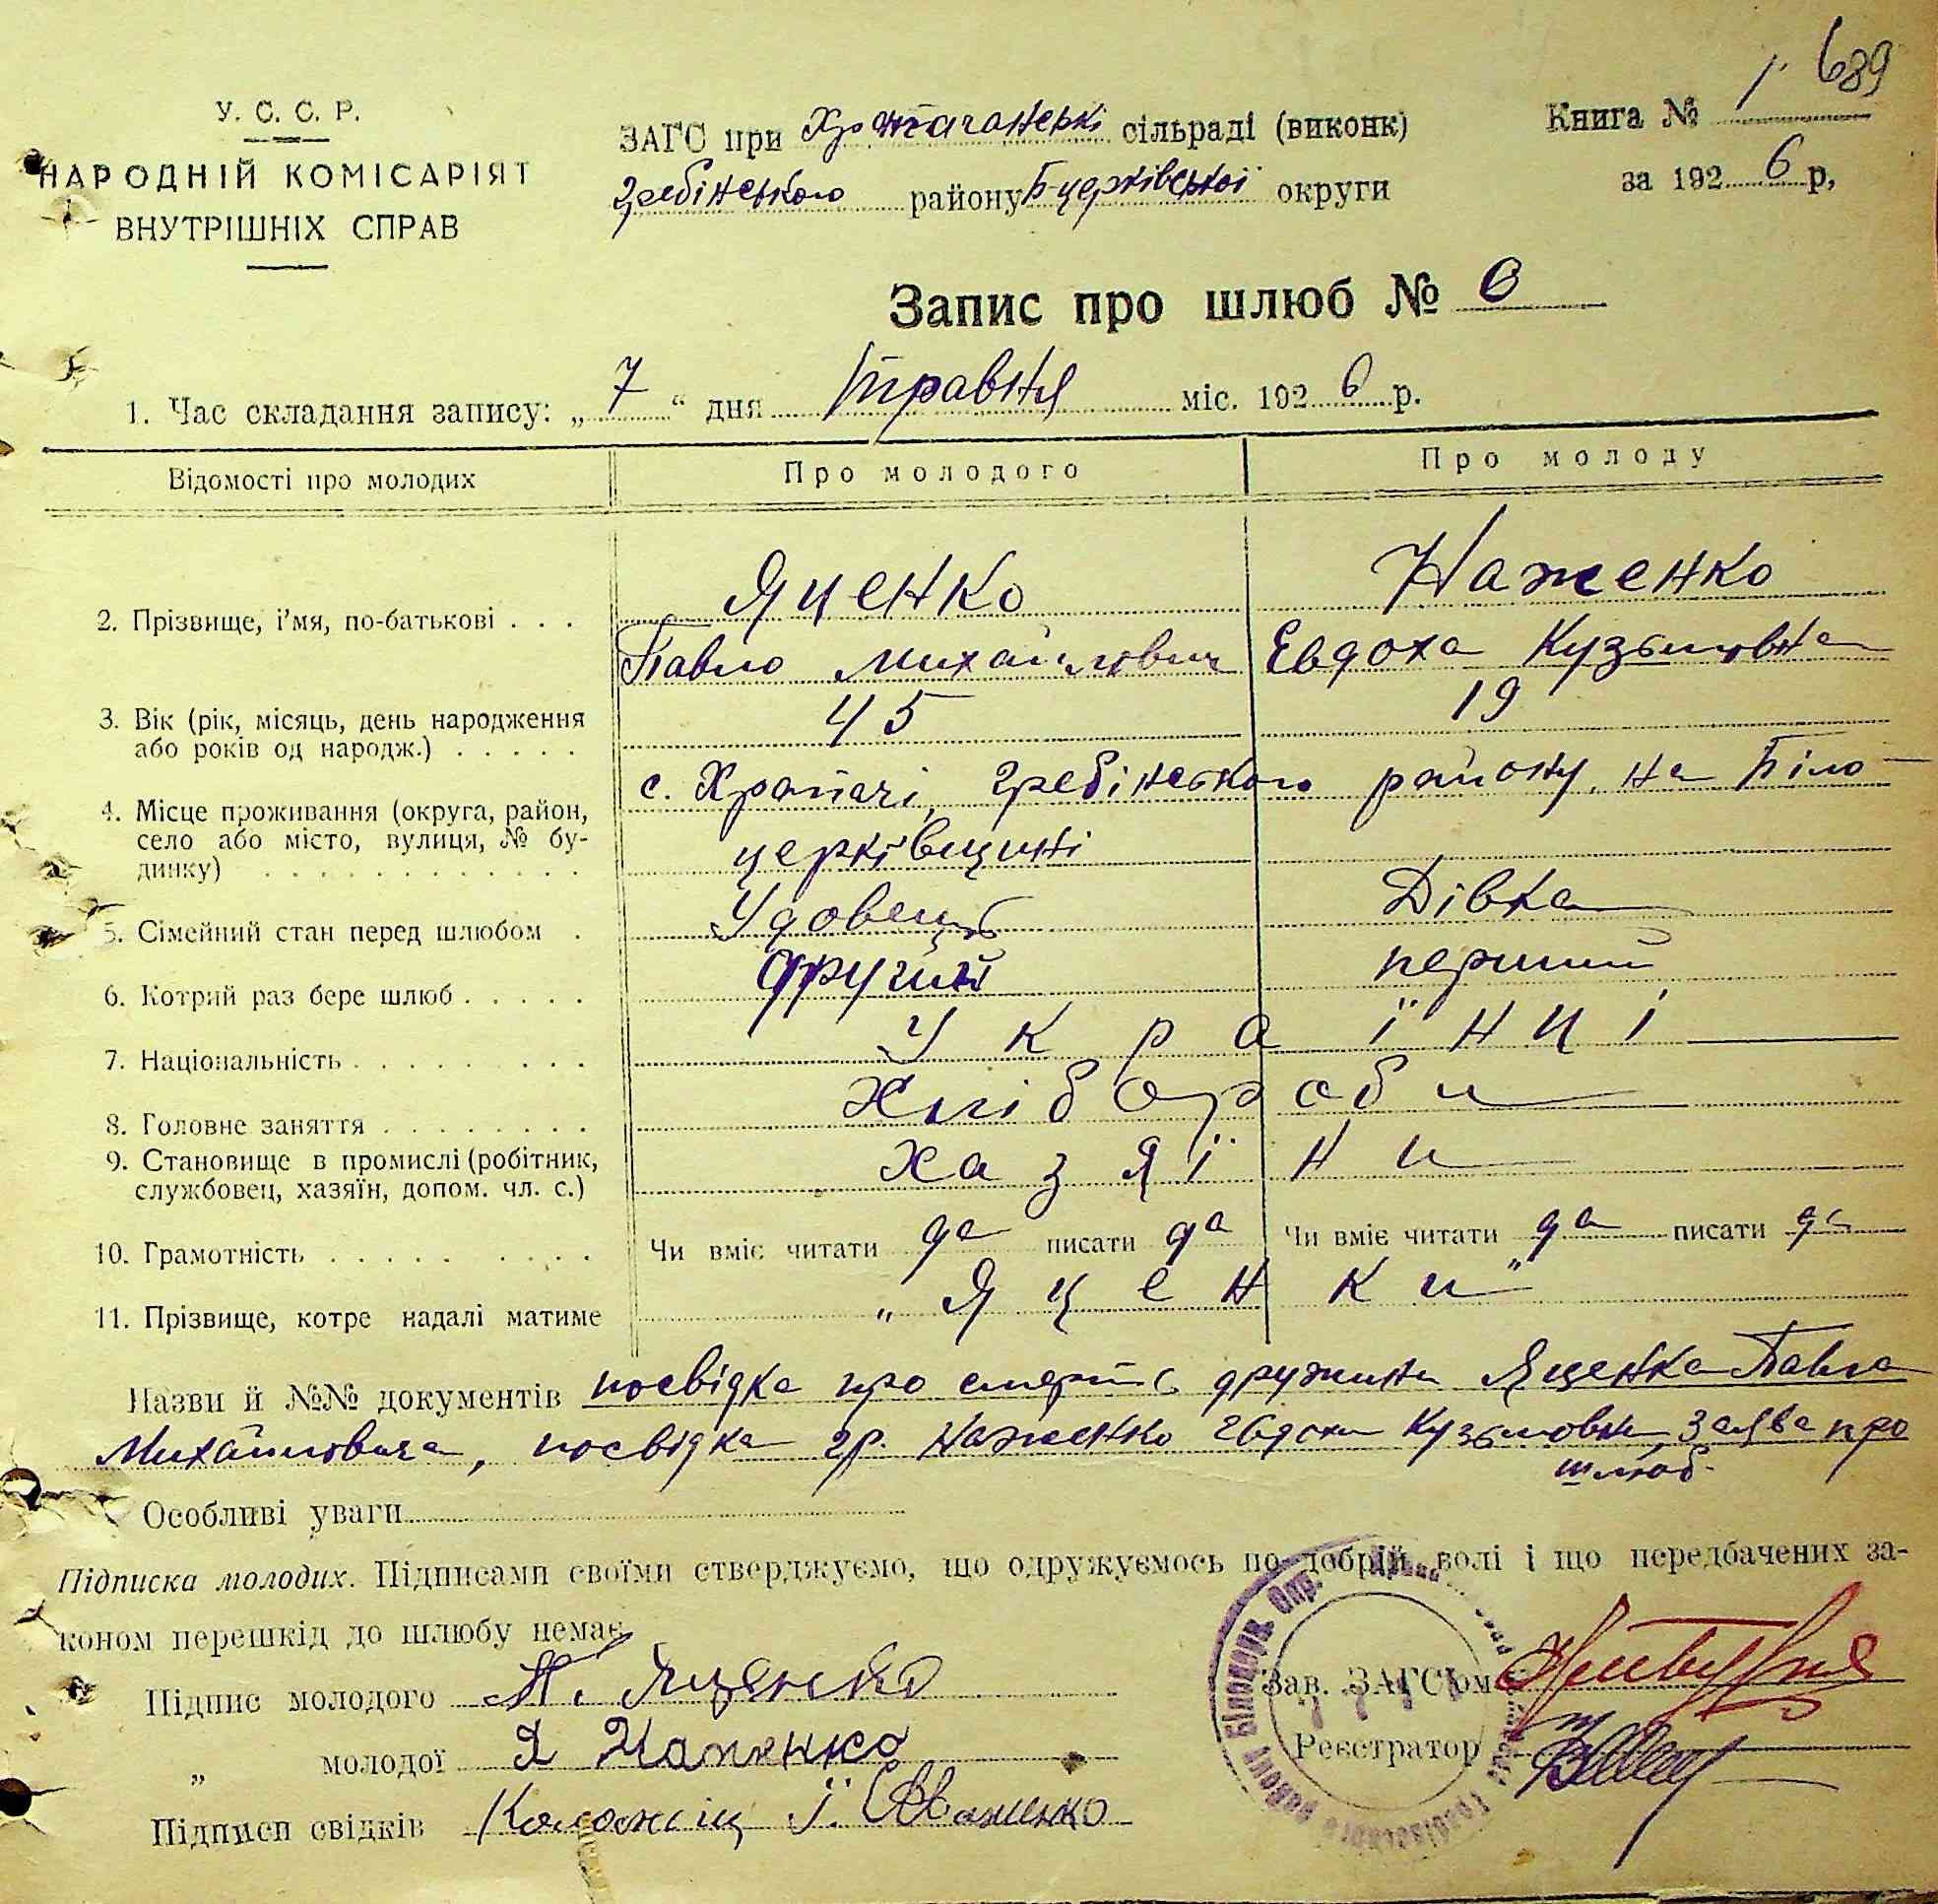 У. С. С. Р.
НАРОДНІЙ КОМІСАРІЯТ
ВНУТРІШНІХ СПРАВ
ЗАГС при сільраді (виконк)
Гребінського району Б церківської округи
Книга № 1 689
за 1926 р,
Запис про шлюб № 6
1. Час складання запису: „7“ дня травня міс. 1926 р.
Відомості про молодих Про молодого Про молоду
2. Прізвище, і'мя, по-батькові . . . Яценко Наженко
Павло Михайлович Евдоха Кузьмовна
3. Вік (рік, місяць, день народження 45 19
або років од народж.) . . . . .
с. Храпачі, Гребінського району, на Біло-
4. Місце проживання (округа, район,
село або місто, вулиця, № бу- церківщині
динку)
5. Сімейний стан перед шлюбом . Удовець Дівка
6. Котрий раз бере шлюб . . . . . другий перший
7. Національність . . . . . . . . . Українці
8. Головне заняття . . . . . . . . Хлібороби
9. Становище в промислі (робітник, Хазяїни
службовец, хазяїн, допом. чл. с.)
10. Грамотність . . . . . . . . . Чи вміє читати да писати да Чи вміє читати да писати да
11. Прізвище, котре надалі матиме „Яценки"
Назви й №№ документів посвідка про смерть дружини Яценка Павла
Михайловича, посвідка гр. Наженко Евдохи Кузьмовни, заява про
шлюб.
Особливі уваги
Підписка молодих. Підписами своїми стверджуємо, що одружуємось по добрій волі і що передбачених за-
коном перешкід до шлюбу немає
Підпис молодого П. Яценко
Зав. ЗАГС'ом
„ молодої Наженко
Реєстратор
Підписи свідків
Білоцерк. Окр.